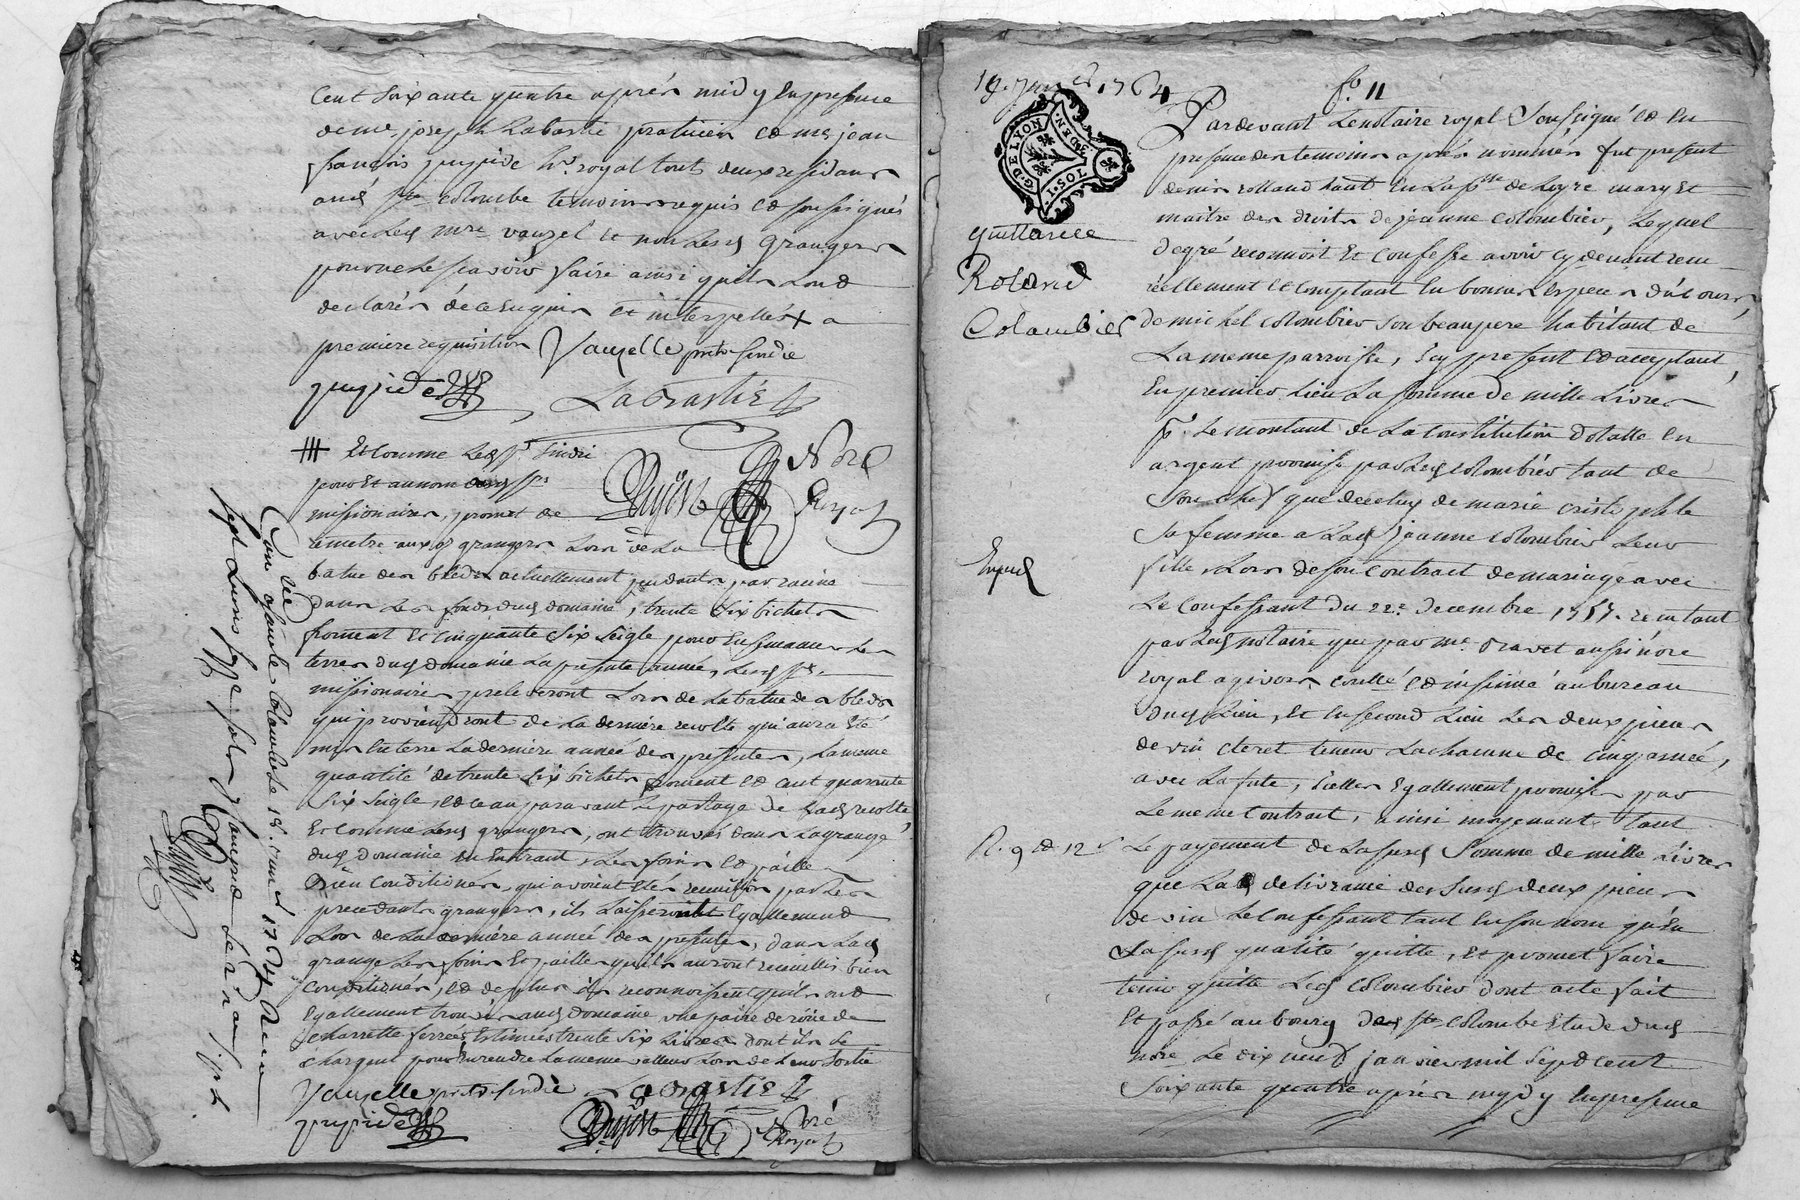 Cent soixante quatre aprés midy en presence
de me. joseph Labastie praticien et me jean
françois pupide hr. royal tout deux residans
aud ste colombe temoins requis et soussignés
avec led mre vauzel et non lesd grangers
pour ne le scavoir faire ainsi quils ont
declarés de ce enquis et interpellés +
premiere requisition Vauzelle pretre sindic
pupide
Labastiè
# Et comme led sr sindic
pour et au nom desd srs
missionaires, promet de
remetre auxd grangers Lors de La
batue des bleds actuellement pendants par racine
dans Les fonds dud domaine, trente six bichets
froment et cinquante six seigle pour ensemancer les
terres dud domaine La presente année, Lesd srs
missionaires preleveront Lors de La batue des bleds
qui proviendront de La derniere recolte qui aura été
mis en terre La derniere année des presentes, La meme
quantité de trente six bichets froment et cent quarante
six seigle, et ce auparavant Le partage de Lad recolte,
Et comme Lesd grangers, ont trouvés dans La grange
dud domaine en entrant Les foins et paille
bien conditionés, qui avoient etés recueillis par Les
precedants grangers, ils Laisseront Egallement
Lors de La derniere année des presentes, dans Lad
grange Les foins Et paille qu'ils auront recueillis bien
conditionés, et de plus ils reconnoissent qu'ils ont
Egallement trouvés aud domaine une paire de roüe de
charrette ferrées Estimées trente six Livres dont ils se
chargent pour En rendre La meme valleur Lors de Leur sortie
Vauzelle pretre sindic Labastiè
pupide
Dujast
Nore
Royal
Dujast
Nré
Royal
Con lée a sainte Colombe Le 18. janvr 1764 Recu
sept Livres
19. Janer 1764
fo. 11
G. DE LYON
1. SOL
8. DEN.
quittance
Roland
Colombier
Exped
R. 9 et 12 s
Pardevant Le notaire royal soussigné et en
presence des temoins aprés nommés fut present
denis rolland hant en La psse de Loyre mary et
maitre des droits de jeanne colombier, Lequel
de gré reconnoit Et confesse avoir cy devant recu
réellement et comptant en bonnes especes du cours,
de michel colombier son beaupere habitant de
La meme parroisse, icy present et acceptant,
En premier Lieu La somme de mille Livres
pr. Le montant de La constitution dotalle en
argent promise par Led colombier tant de
son chef que de celuy de marie
sa femme a Lad jeanne colombier Leur
fille Lors de son contract de mariage avec
Le confessant du 22e decembre 1757. recu tant
par Led notaire que par me. Travet aussi nore
royal a givors, conllé et insinué au bureau
dud Lieu, Et en second Lieu Les deux pieces
de vin cleret teneur Lachacune de cinq anée,
avec La fute, icelles Egallement promises par
Le meme contract, ainsi moyenant tant
Le payement de Lasusd somme de mille Livres
que La delivrance des susd deux pieces
de vin Le confessant tant en son nom qu'en
Lasusd qualité quitte, Et promet faire
tenir quitte Led colombier dont acte fait
Et passé au bourg de ste colombe Etude dud
nore Le dix neuf janvier mil sept cent
soixante quatre aprés mydy En presence